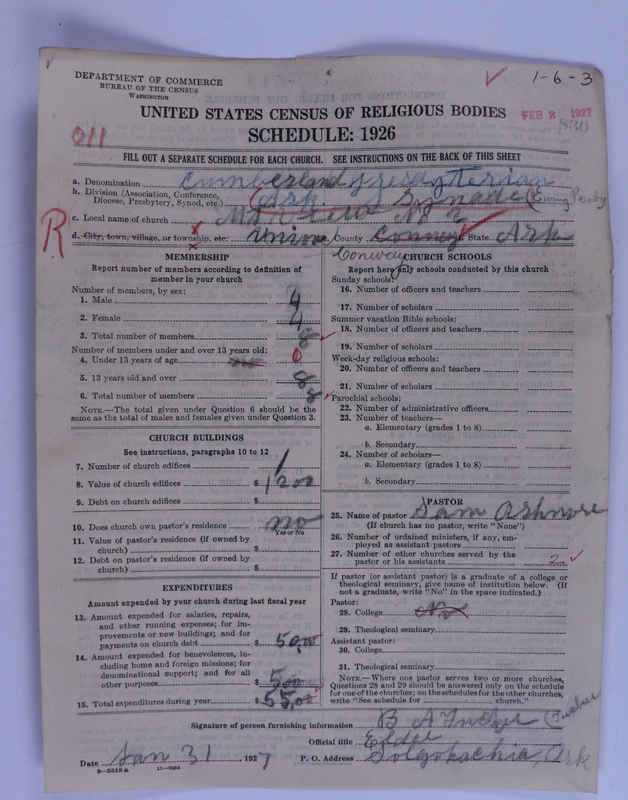 DEPARTMENT OF COMMERCE
BUREAU OF THE CENSUS
WASHINGTON
1-6-3
UNITED STATES CENSUS OF RELIGIOUS BODIES
FEB 3 1927
8:30
SCHEDULE: 1926
011
FILL OUT A SEPARATE SCHEDULE FOR EACH CHURCH. SEE INSTRUCTIONS ON THE BACK OF THIS SHEET
a. Denomination Cumberland Presbyterian
b. Division (Association, Conference, Diocese, Presbytery, Synod, etc.) Ark Synade (Ewing Presby
c. Local name of church No 2
R
d. City, town, village, or township, etc. Union County Conway State Ark
Conway
MEMBERSHIP
Report number of members according to definition of
member in your church
Number of members, by sex:
1. Male 4
2. Female 4
3. Total number of members 8
Number of members under and over 13 years old:
4. Under 13 years of age no 0
5. 13 years old and over 8
6. Total number of members 8
NOTE.—The total given under Question 6 should be the
same as the total of males and females given under Question 3.
CHURCH BUILDINGS
See instructions, paragraphs 10 to 12
7. Number of church edifices 1
8. Value of church edifices $ 1200
9. Debt on church edifices $
10. Does church own pastor's residence no
Yes or No
11. Value of pastor's residence (if owned by
church) $
12. Debt on pastor's residence (if owned by
church) $
EXPENDITURES
Amount expended by your church during last fiscal year
13. Amount expended for salaries, repairs,
and other running expenses; for im-
provements or new buildings; and for
payments on church debt $ 50,00
14. Amount expended for benevolences, in-
cluding home and foreign missions; for
denominational support; and for all
other purposes $ 5,00
15. Total expenditures during year $ 55,00
CHURCH SCHOOLS
Report here only schools conducted by this church
Sunday schools:
16. Number of officers and teachers
17. Number of scholars
Summer vacation Bible schools:
18. Number of officers and teachers
19. Number of scholars
Week-day religious schools:
20. Number of officers and teachers
21. Number of scholars
Parochial schools:
22. Number of administrative officers
23. Number of teachers—
a. Elementary (grades 1 to 8)
b. Secondary
24. Number of scholars—
a. Elementary (grades 1 to 8)
b. Secondary
PASTOR
25. Name of pastor Sam Ashmore
(If church has no pastor, write "None")
26. Number of ordained ministers, if any, em-
ployed as assistant pastors
27. Number of other churches served by the
pastor or his assistants 2
If pastor (or assistant pastor) is a graduate of a college or
theological seminary, give name of institution below. (If
not a graduate, write "No" in the space indicated.)
Pastor:
28. College No
29. Theological seminary
Assistant pastor:
30. College
31. Theological seminary
NOTE.—Where one pastor serves two or more churches,
Questions 28 and 29 should be answered only on the schedule
for one of the churches; on the schedules for the other churches,
write "See schedule for church."
Signature of person furnishing information B A (Tucker
Official title Elder
Date Jan 31, 1927 P. O. Address Solgohachia, Ark
8-5518 a 11-9864